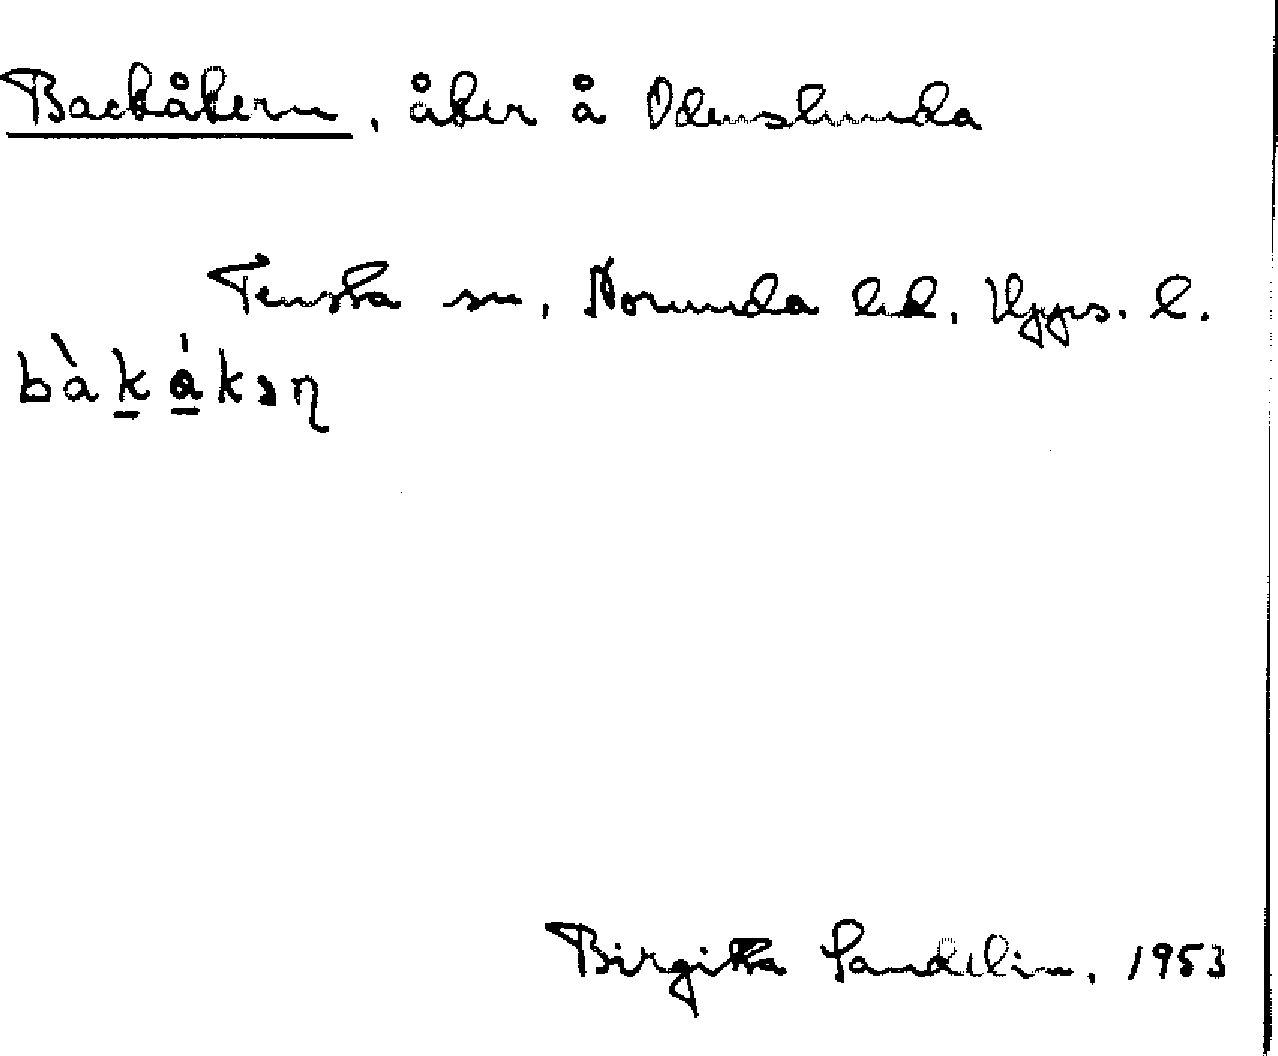 Backåkern, åker å Odenslunda
Tensta sn, Norunda hd, Upps. l.
bàk̠á̠kəη
Birgitta Sandelin, 1953